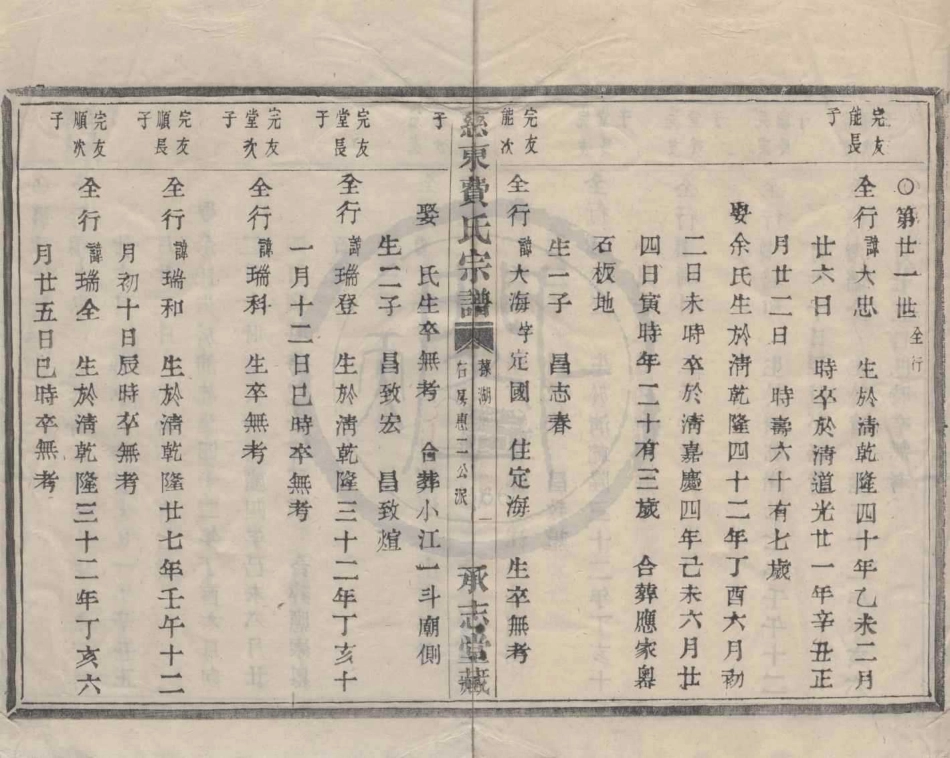 ○第廿一世 全行
完友能長子
全行諱大忠 生於淸乾隆四十年乙未二月
廿六日 時卒於淸道光廿一年辛丑正
月廿二日 時壽六十有七歲
娶余氏生於淸乾隆四十二年丁酉六月初
二日未時卒於淸嘉慶四年己未六月廿
四日寅時年二十有三歲 合葬應家嶴
石板地
生一子 昌志春
完友能次子
全行諱大海字定國 住定海 生卒無考
娶 氏生卒無考 合葬小江一斗廟側
生二子 昌致宏 昌致煊
慈東費氏宗譜 公派 一 承志堂藏
完友堂長子
全行諱瑞登 生於淸乾隆三十二年丁亥十
一月十二日巳時卒無考
完友堂次子
全行諱瑞科 生卒無考
完友順長子
全行諱瑞和 生於淸乾隆廿七年壬午十二
月初十日辰時卒無考
完友順次子
全行諱瑞全 生於淸乾隆三十二年丁亥六
月廿五日巳時卒無考